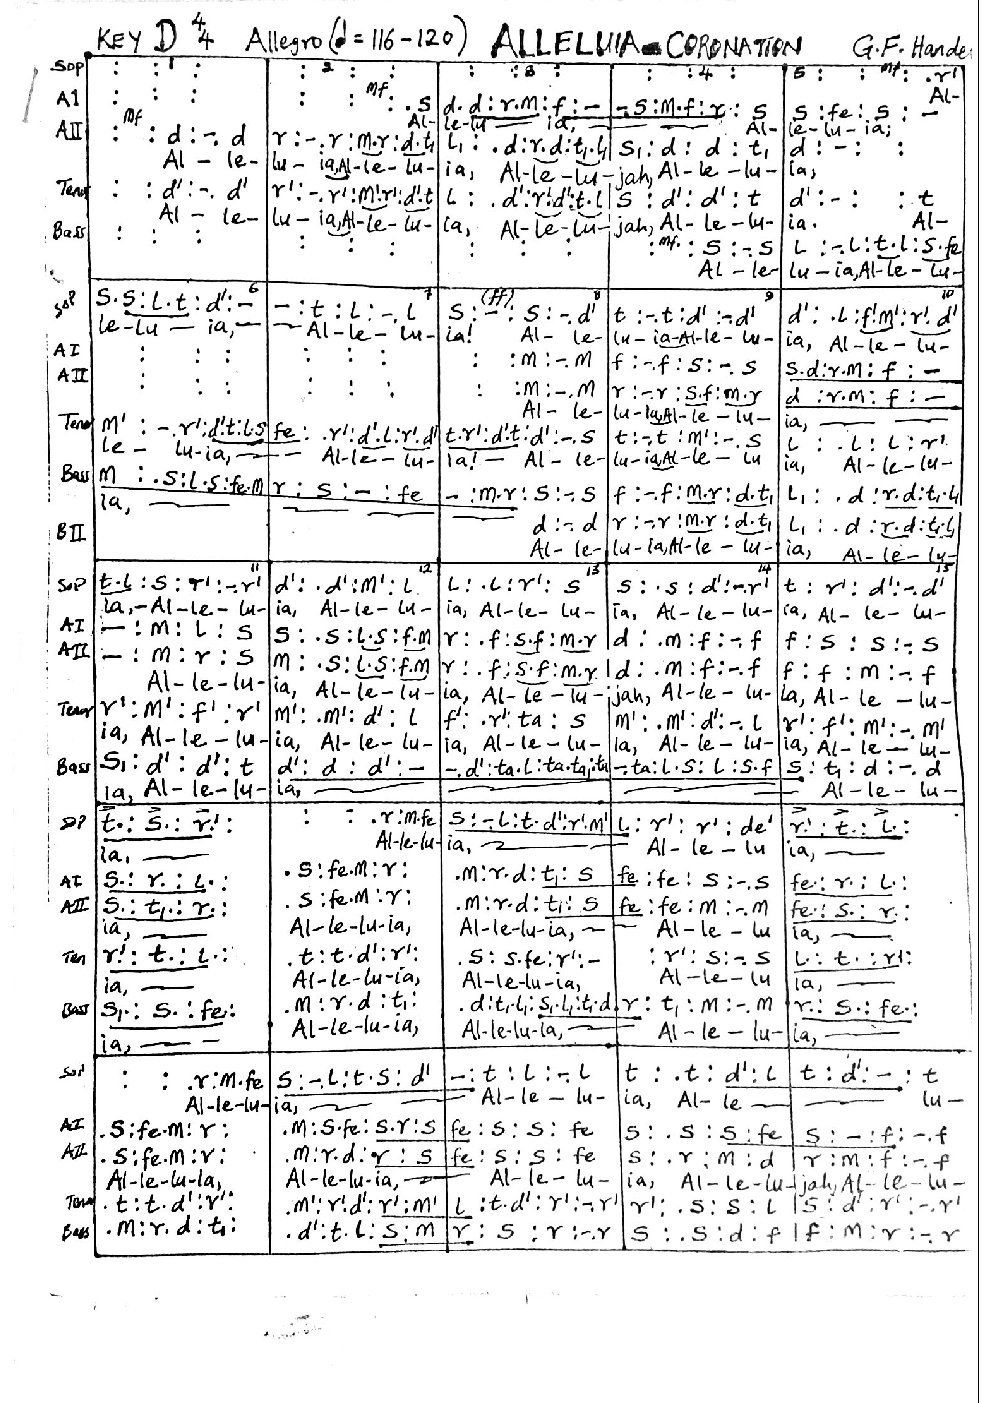 KEY D 4/4 Allegro (d = 116-120) ALLELUIA - CORONATION G.F. Hande
Sop : : 1 : : 2 : : : 3 : : : 4 : 5 : : mf : .r'
Al-
A1 : : : : : mf : .s d.d:r.m:f:- -.s:m.f:r: s s:fe:s:-
Al- le-lu — ia, Al- le-lu-ia;
AII mf : : d:-.d r:-.r:m.r:d.t₁ l₁: .d:r.d:t₁.l₁ s₁:d:d:t₁ d:-: :
Al - le- lu - ia,Al-le-lu- ia, Al-le-lu-jah, Al-le-lu- ia,
Tenor : : d':-.d' r':-.r':m'.r':d'.t l: .d':r'.d':t.l s:d':d':t d':-: : t
Al - le- lu - ia,Al-le-lu- ia, Al-le-lu-jah, Al-le-lu- ia. Al-
Bass : : : : : : : : : mf. : s:-.s l:-.l:t.l:s.fe
Al - le- lu-ia,Al-le-lu-
Sop s.s:l.t:d':- 6 -:t:l:-.l 7 s:-(ff):s:-.d' 8 t:-.t:d':-.d' 9 d': .l:f'.m':r'.d' 10
le-lu — ia, Al-le-lu- ia! Al- le- lu-ia-Al-le-lu- ia, Al-le-lu-
AI : : : : : : : :m:-.m f:-.f:s:-.s s.d:r.m:f:-
AII : : : : : : : :m:-.m r:-.r:s.f:m.r d:r.m:f:-
Al-le- lu-ia,Al-le-lu- ia,
Tenor m':-.r':d'.t:l.s fe: .r':d'.l:r'.d' t.r':d'.t:d':-.s t:-.t:m':-.s l: .l:l:r'.
le - lu-ia, Al-le-lu- ia! - Al-le- lu-ia,Al-le-lu ia, Al-le-lu-
Bass m: .s:l.s:fe.m r:s:-:fe -:m.r:s:-.s f:-.f:m.r:d.t₁ l₁: .d:r.d:t₁.l₁
ia,
BII d:-.d r:-.r:m.r:d.t₁ l₁: .d:r.d:t₁.l₁
Al-le- lu-ia,Al-le-lu- ia, Al-le-lu-
Sop t.l:s:r':-.r' 11 d': .d':m':l 12 l: .l:r': s 13 s: .s:d':-.r' 14 t: r': d':-.d' 15
ia,-Al-le-lu- ia, Al-le-lu- ia, Al-le-lu- ia, Al-le-lu- ia, Al-le-lu-
AI -:m:l:s s: .s:l.s:f.m r: .f:s.f:m.r d: .m:f:-.f f:s:s:-.s
AII -:m:r:s m: .s:l.s:f.m r: .f:s.f:m.r d: .m:f:-.f f:f:m:-.f
Al-le-lu- ia, Al-le-lu- ia, Al-le-lu-jah, Al-le-lu- la, Al-le-lu-
Tenor r':m':f':r' m': .m':d':l f': .r':ta:s m': .m':d':-.l r':f':m':-.m'
ia, Al-le-lu- ia, Al-le-lu- ia, Al-le-lu- ia, Al-le-lu- ia, Al-le-lu-
Bass s₁:d':d':t d':d:d':- -.d':ta.l:ta.ta:ta -.ta:l.s:l:s.f s:t₁:d:-.d
ia, Al-le-lu- ia, Al-le-lu-
Sop t.:s.:r'.: : : .r:m.fe s:-.l:t.d':r'.m' l:r':r':de' r'.:t.:l.:
ia, Al-le-lu- ia, Al-le-lu ia,
AI s.:r.:l.: .s:fe.m:r: .m:r.d:t₁:s fe:fe:s:-.s fe.:r.:l.:
AII s.:t₁.:r.: .s:fe.m:r: .m:r.d:t₁:s fe:fe:m:-.m fe.:s.:r.:
ia, Al-le-lu-ia, Al-le-lu-ia, - Al-le-lu ia,
Ten r'.:t.:l.: .t:t.d':r': .s:s.fe:r':- :r':s:-.s l.:t.:r'.:
ia, Al-le-lu-ia, Al-le-lu-ia, Al-le-lu ia,
Bass s₁.:s.:fe.: .m:r.d:t₁: .d:t₁.l₁:s₁.l₁:t₁.d r:t₁:m:-.m r.:s.:fe.:
ia, Al-le-lu-ia, Al-le-lu-ia, Al-le-lu- ia,
Sop : : .r:m.fe s:-.l:t.s:d' -:t:l:-.l t: .t:d':l t:d':-:t
Al-le-lu- ia, Al-le-lu- ia, Al-le lu-
AI .s:fe.m:r: .m:s.fe:s.r:s fe:s:s:fe s: .s:s:fe s:-:f:-.f
AII .s:fe.m:r: .m:r.d:r:s fe:s:s:fe s: .r:m:d r:m:f:-.f
Al-le-lu-ia, Al-le-lu-ia, Al-le-lu- ia, Al-le-lu-jah, Al-le-lu-
Tenor .t:t.d':r': .m':r'.d':r':m' l:t.d':r':-.r' r': .s:s:l s:d':r':-.r'
Bass .m:r.d:t₁: .d':t.l:s:m r:s:r:-.r s: .s:d:f f:m:r:-.r